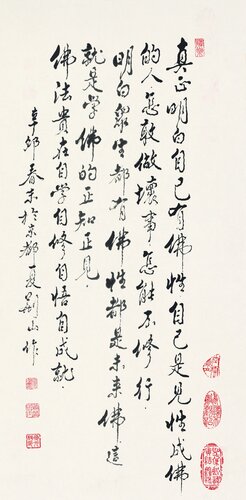 真正明白自己有佛性自己是見性成佛
的人怎敢做壞事怎能不修行
明白眾生都有佛性都是未来佛這
就是學佛的正知正見
佛法貴在自学自修自悟自成就
辛卯春末於京都夏荆山作